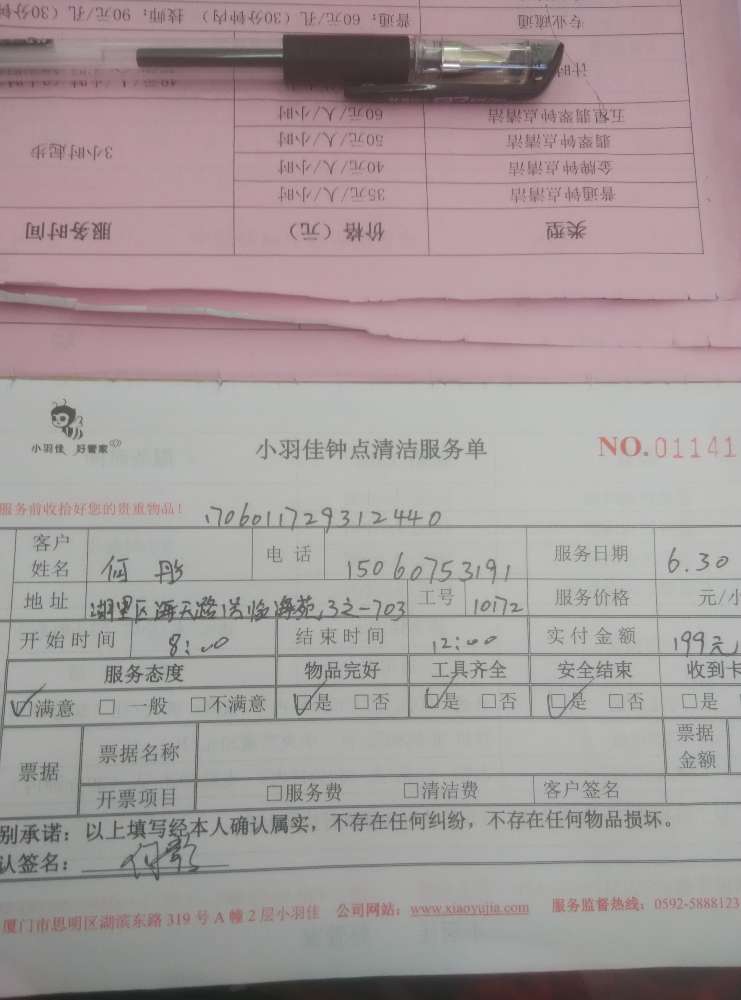 专业疏通 普通：60元/孔（30分钟内） 技师：90元/孔（30分钟
计时
五星翡翠钟点清洁 60元/人/小时
翡翠钟点清洁 50元/人/小时 3小时起步
金牌钟点清洁 40元/人/小时
普通钟点清洁 35元/人/小时
类型 价格（元） 服务时间
小羽佳 好管家
小羽佳钟点清洁服务单
NO.01141
服务前收拾好您的贵重物品！
1706011729312440
客户姓名 何彤 电 话 15060753191 服务日期 6.30
地 址 湖里区海天路 临海苑 3之-703 工号 10172 服务价格 元/小
开始时间 8:00 结束时间 12:00 实付金额 199元
服务态度 物品完好 工具齐全 安全结束 收到卡
☑满意 □ 一般 □不满意 ☑是 □否 ☑是 □否 ☑是 □否 □是
票据 票据名称 票据金额
开票项目 □服务费 □清洁费 客户签名
别承诺：以上填写经本人确认属实，不存在任何纠纷，不存在任何物品损坏。
认签名：
厦门市思明区湖滨东路 319 号 A 幢 2 层小羽佳 公司网站：www.xiaoyujia.com 服务监督热线：0592-5888123